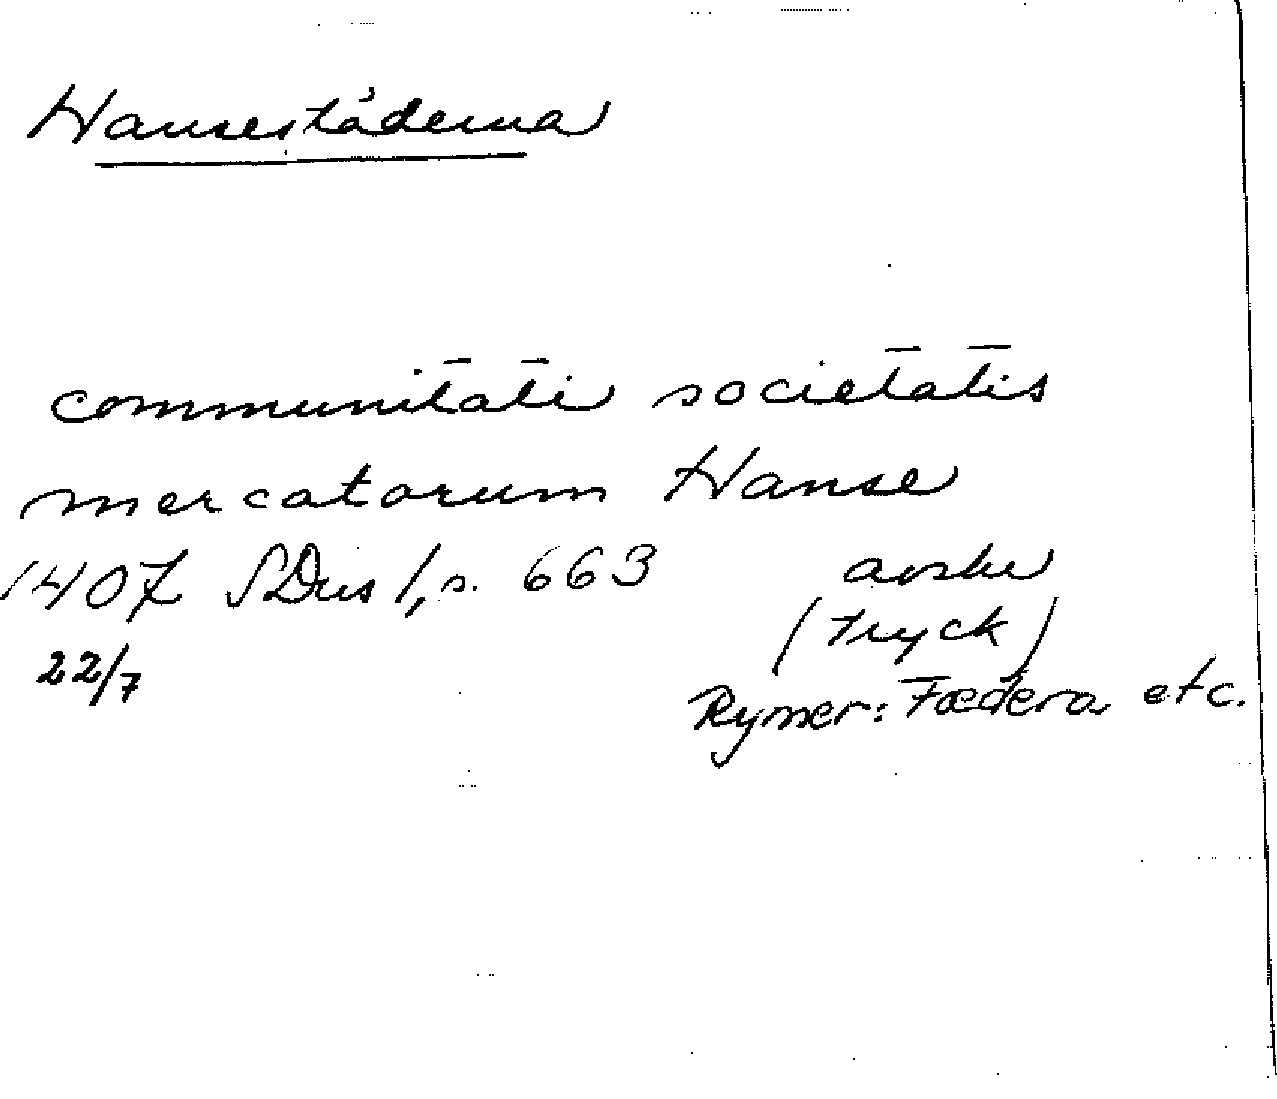 Hansestäderna
communitati societatis
mercatorum Hanse
1407 SDns 1, s. 663 avskr
22/7 (tryck)
Rymer: Fœdera etc.